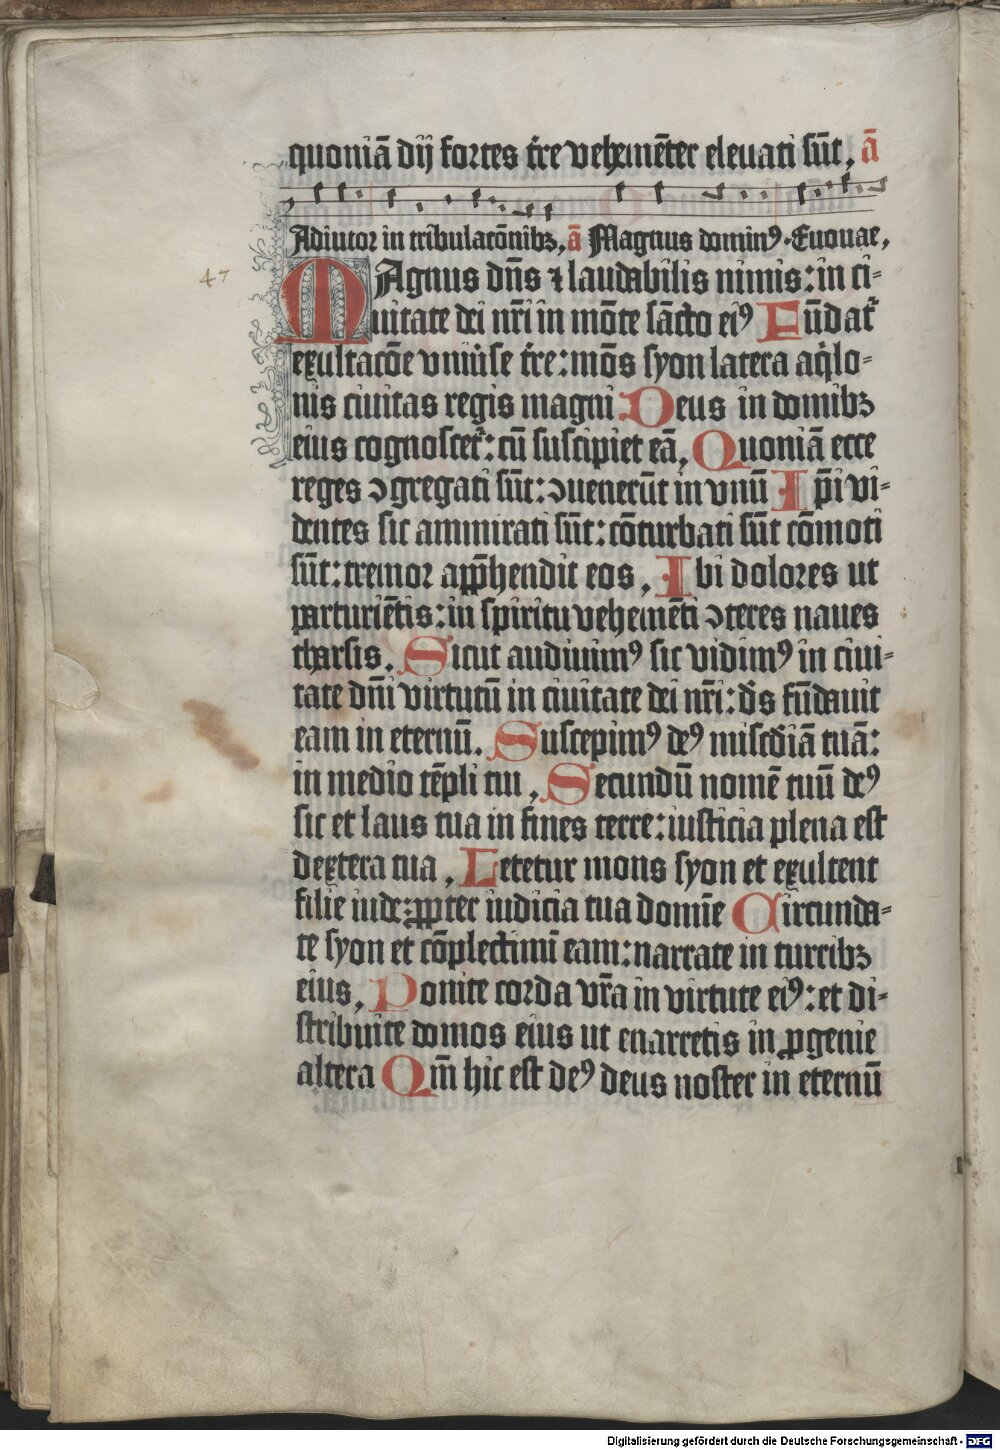 quoniā dij fortes t̄re vehemēter eleuati sūt, ā
Adiutor in tribulacōnibꝫ, ā Magnus dominꝰ. Euouae,
47
MAgnus dn̄s ⁊ laudabilis nimis: in ci-
uitate dei nr̄i in mōte sācto eiꝰ Fūdat᷑
exultacōe vniu̇se t̄re: mōs syon latera aq̇lo-
nis ciuitas regis magni Deus in domibꝫ
eius cognoscet᷑: cū suscipiet eā, Quoniā ecce
reges ↄgregati sūt: ↄuenerūt in vnū Ip̄i vi-
dentes sic ammirati sūt: cōturbati sūt cōmoti
sūt: tremor app̄hendit eos, Ibi dolores ut
parturiētis: in spiritu vehemēti ↄteres naues
tharsis. Sicut audiuimꝰ sic vidimꝰ in ciui-
tate dn̄i virtutū in ciuitate dei nr̄i: d̄s fūdauit
eam in eternū. Suscepimꝰ deꝰ misc̄diā tuā:
in medio tēpli tui, Secundū nomē tuū deꝰ
sic et laus tua in fines terre: iusticia plena est
dextera tua, Letetur mons syon et exultent
filie iude: ꝓpter iudicia tua domīe Circunda-
te syon et cōplectimī eam: narrate in turribꝫ
eius, Ponite corda vr̄a in virtute eiꝰ: et di-
stribuite domos eius ut enarretis in ꝓgenie
altera Qm̄ hic est deꝰ deus noster in eternū
Digitalisierung gefördert durch die Deutsche Forschungsgemeinschaft - DFG